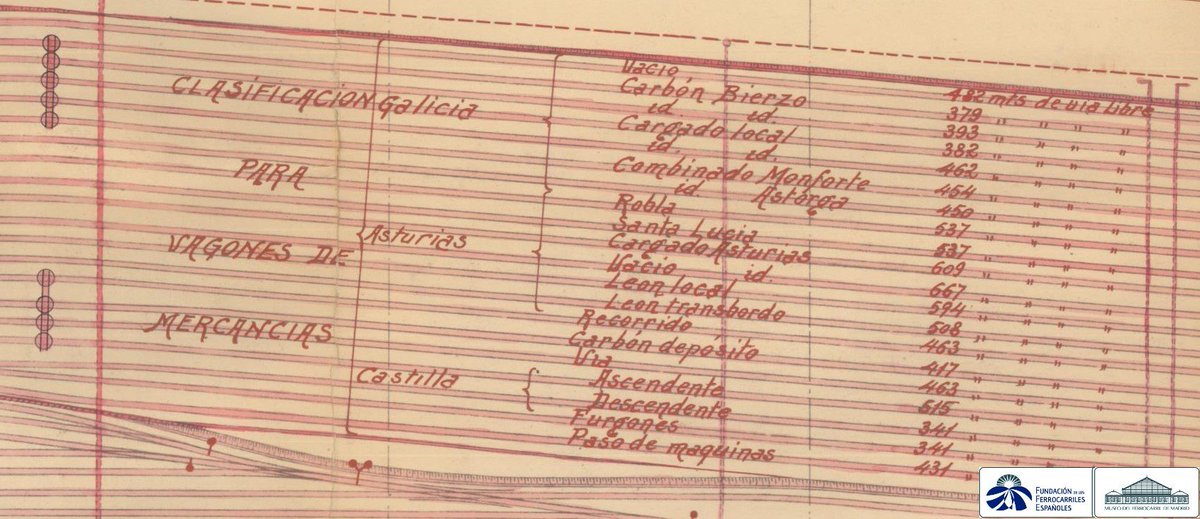 CLASIFICACION
PARA
VAGONES DE
MERCANCIAS
Galicia
Asturias
Castilla
Vacio 482 mts de via libre
Carbón Bierzo 379 " " " "
id. id. 393 " " " "
Cargado local 382 " " " "
id. id. 462 " " " "
Combinado Monforte 454 " " " "
id Astorga 450 " " " "
Robla 537 " " " "
Santa Lucia 537 " " " "
Cargado Asturias 609 " " " "
Vacio id. 667 " " " "
Leon local 594 " " " "
Leon transbordo 508 " " " "
Recorrido 463 " " " "
Carbón depósito 417 " " " "
Via 463 " " " "
Ascendente 515 " " " "
Descendente 341 " " " "
Furgones 341 " " " "
Paso de maquinas 431 " " " "
FUNDACIÓN DE LOS
FERROCARRILES
ESPAÑOLES
MUSEO DEL FERROCARRIL DE MADRID